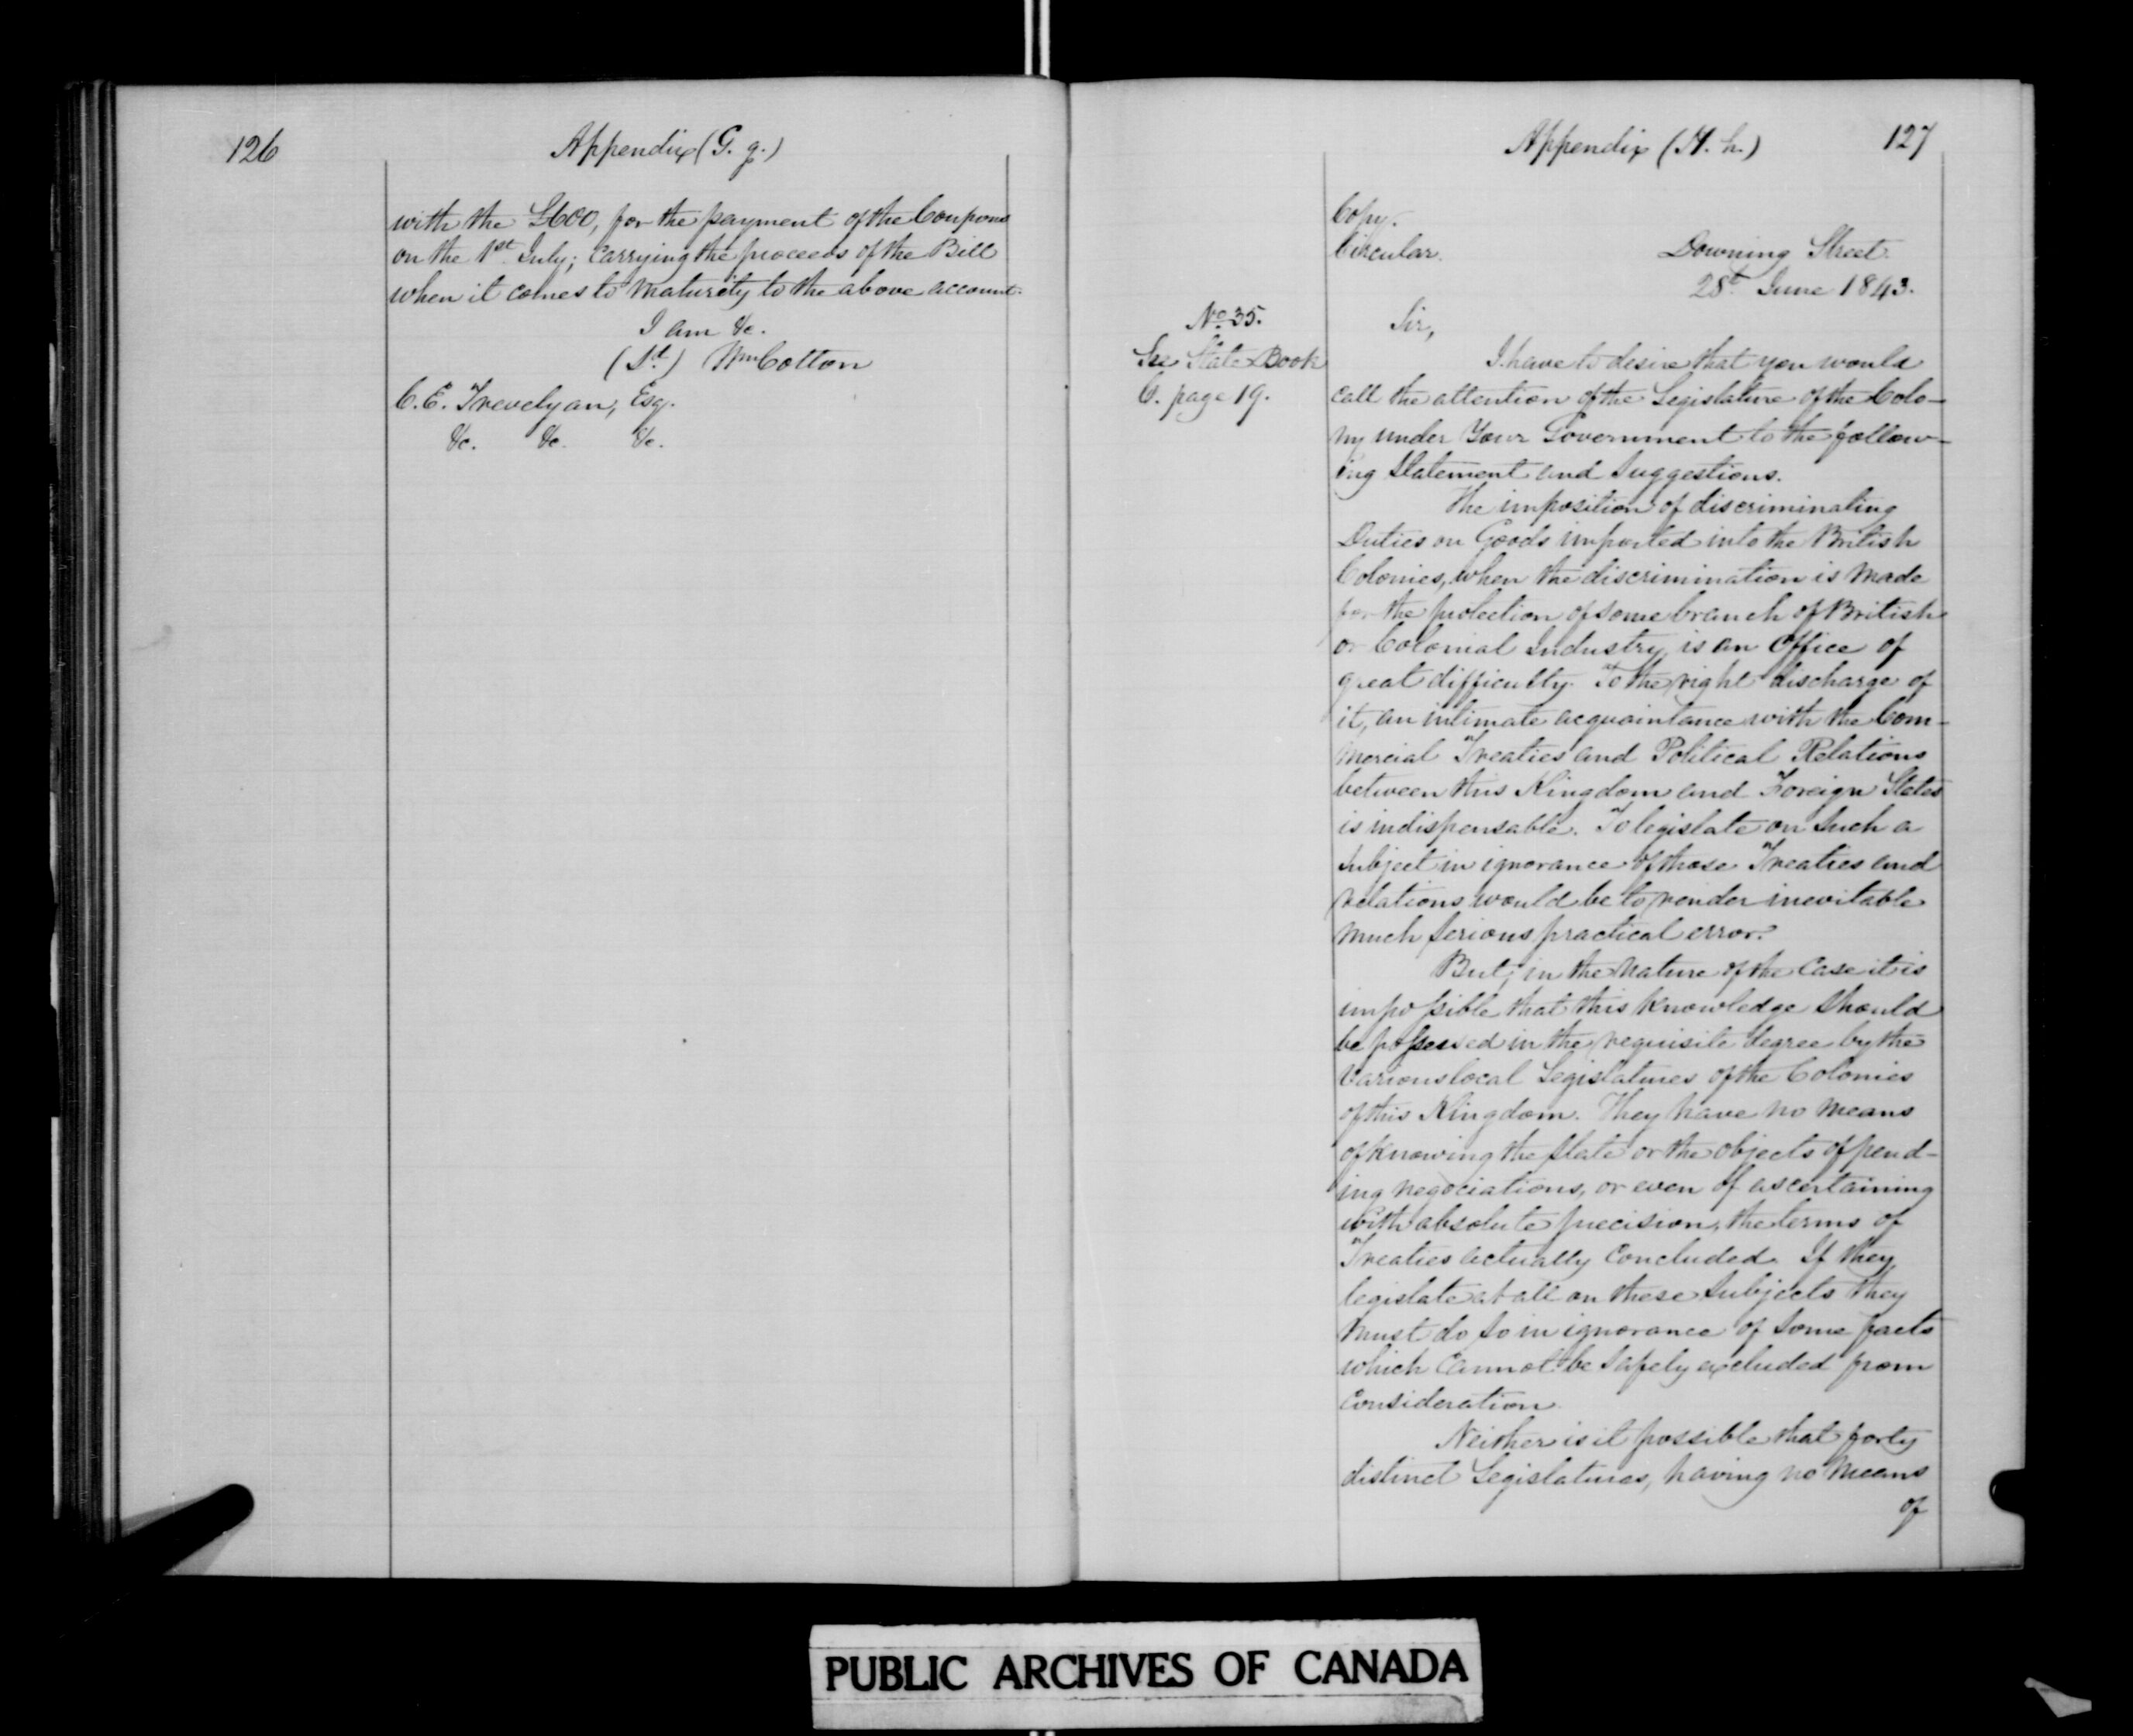 126
Appendix (G. g.)
with the £600, for the payment of the Coupons
on the 1st July; Carrying the proceeds of the Bill
when it comes to Maturity to the above account.
I am &c.
(Sd.) Wm Cotton
C. E. Trevelyan, Esq.
&c. &c. &c.
Appendix (H. h.)
127
Copy.
Circular.
Downing Street.
28t June 1843.
No 35.
See State Book
C. page 19.
Sir,
I have to desire that you would
call the attention of the Legislature of the Colo-
ny under Your Government to the follow-
ing Statement and Suggestions.
The imposition of discriminating
Duties on Goods imported into the British
Colonies, when the discrimination is made
for the protection of some branch of British
or Colonial Industry, is an Office of
great difficulty. To the right discharge of
it, an intimate acquaintance with the Com-
mercial Treaties and Political Relations
between this Kingdom and Foreign States
is indispensable. To legislate on Such a
Subject in ignorance of those Treaties and
relations would be to render inevitable
much Serious practical error.
But, in the nature of the Case it is
impossible that this knowledge Should
be possessed in the requisite degree by the
Various local Legislatures of the Colonies
of this Kingdom. They have no means
of knowing the State or the objects of pend-
ing negociations, or even of ascertaining
with absolute precision, the terms of
Treaties actually Concluded. If they
legislate at all on these Subjects they
must do so in ignorance of Some facts
which Cannot be Safely excluded from
Consideration.
Neither is it possible that forty
distinct Legislatures, having no Means
of
PUBLIC ARCHIVES OF CANADA